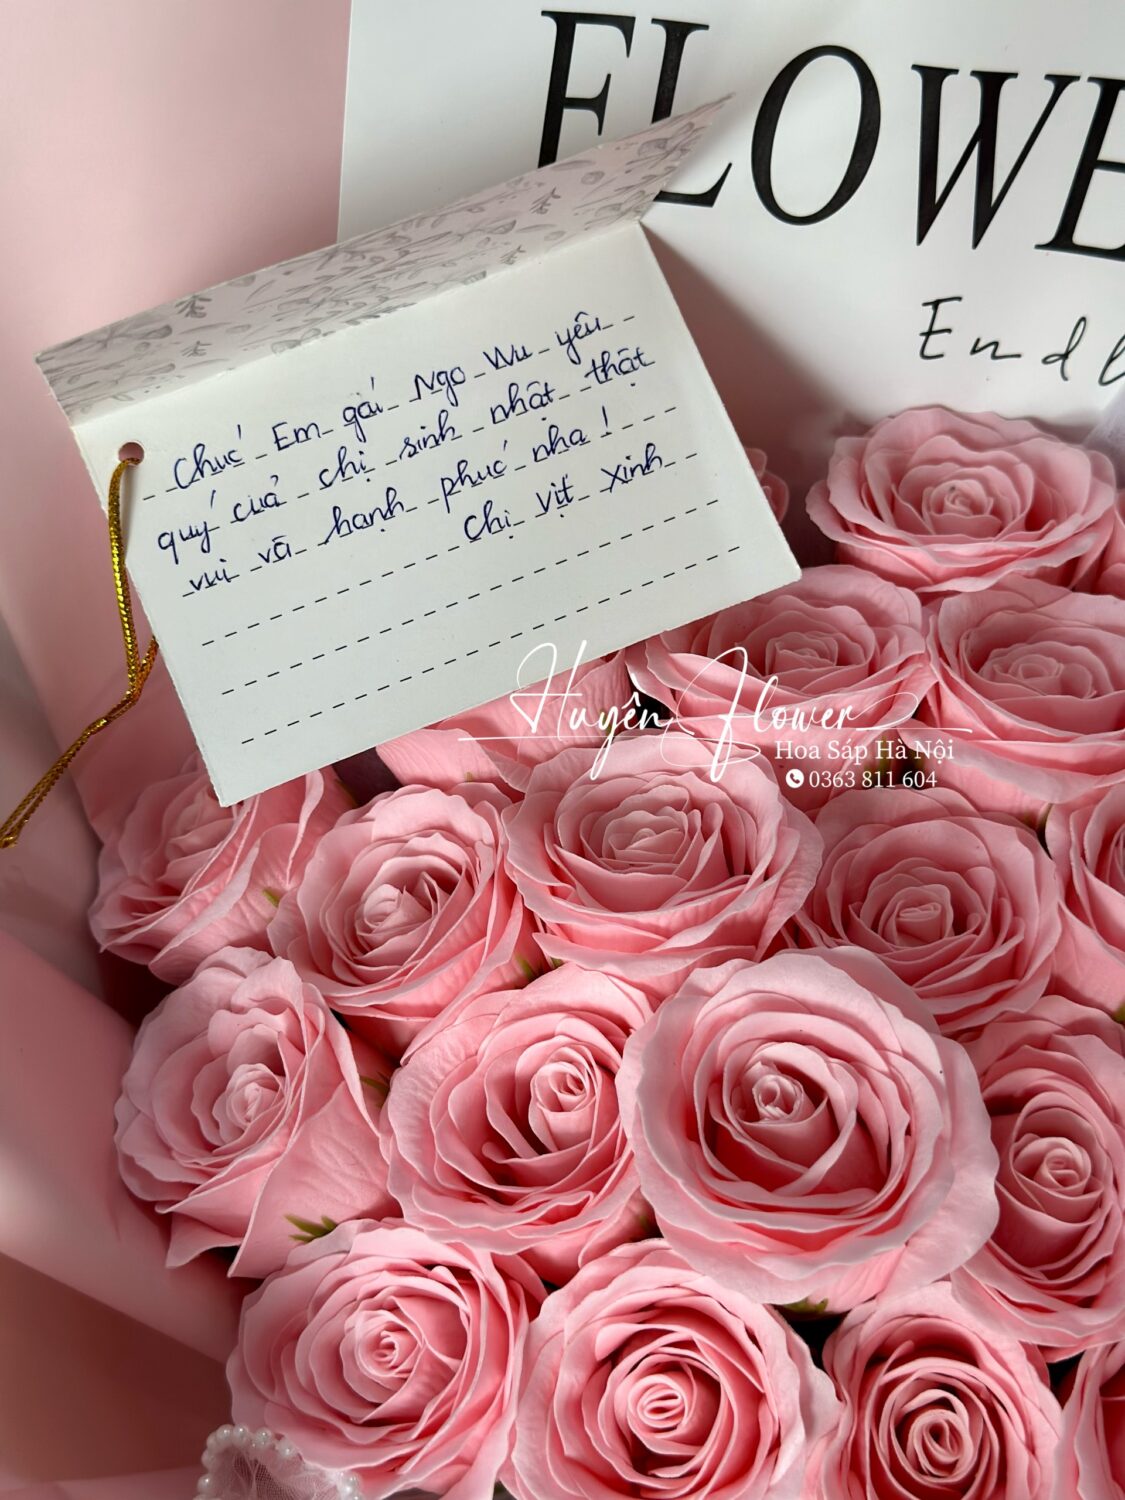 FLOWE
Endl
Chúc Em gái Ngo Wu yêu
quý của chị sinh nhật thật
vui và hạnh phúc nha !
Chị vịt xinh
Huyên Flower
Hoa Sáp Hà Nội
0363 811 604